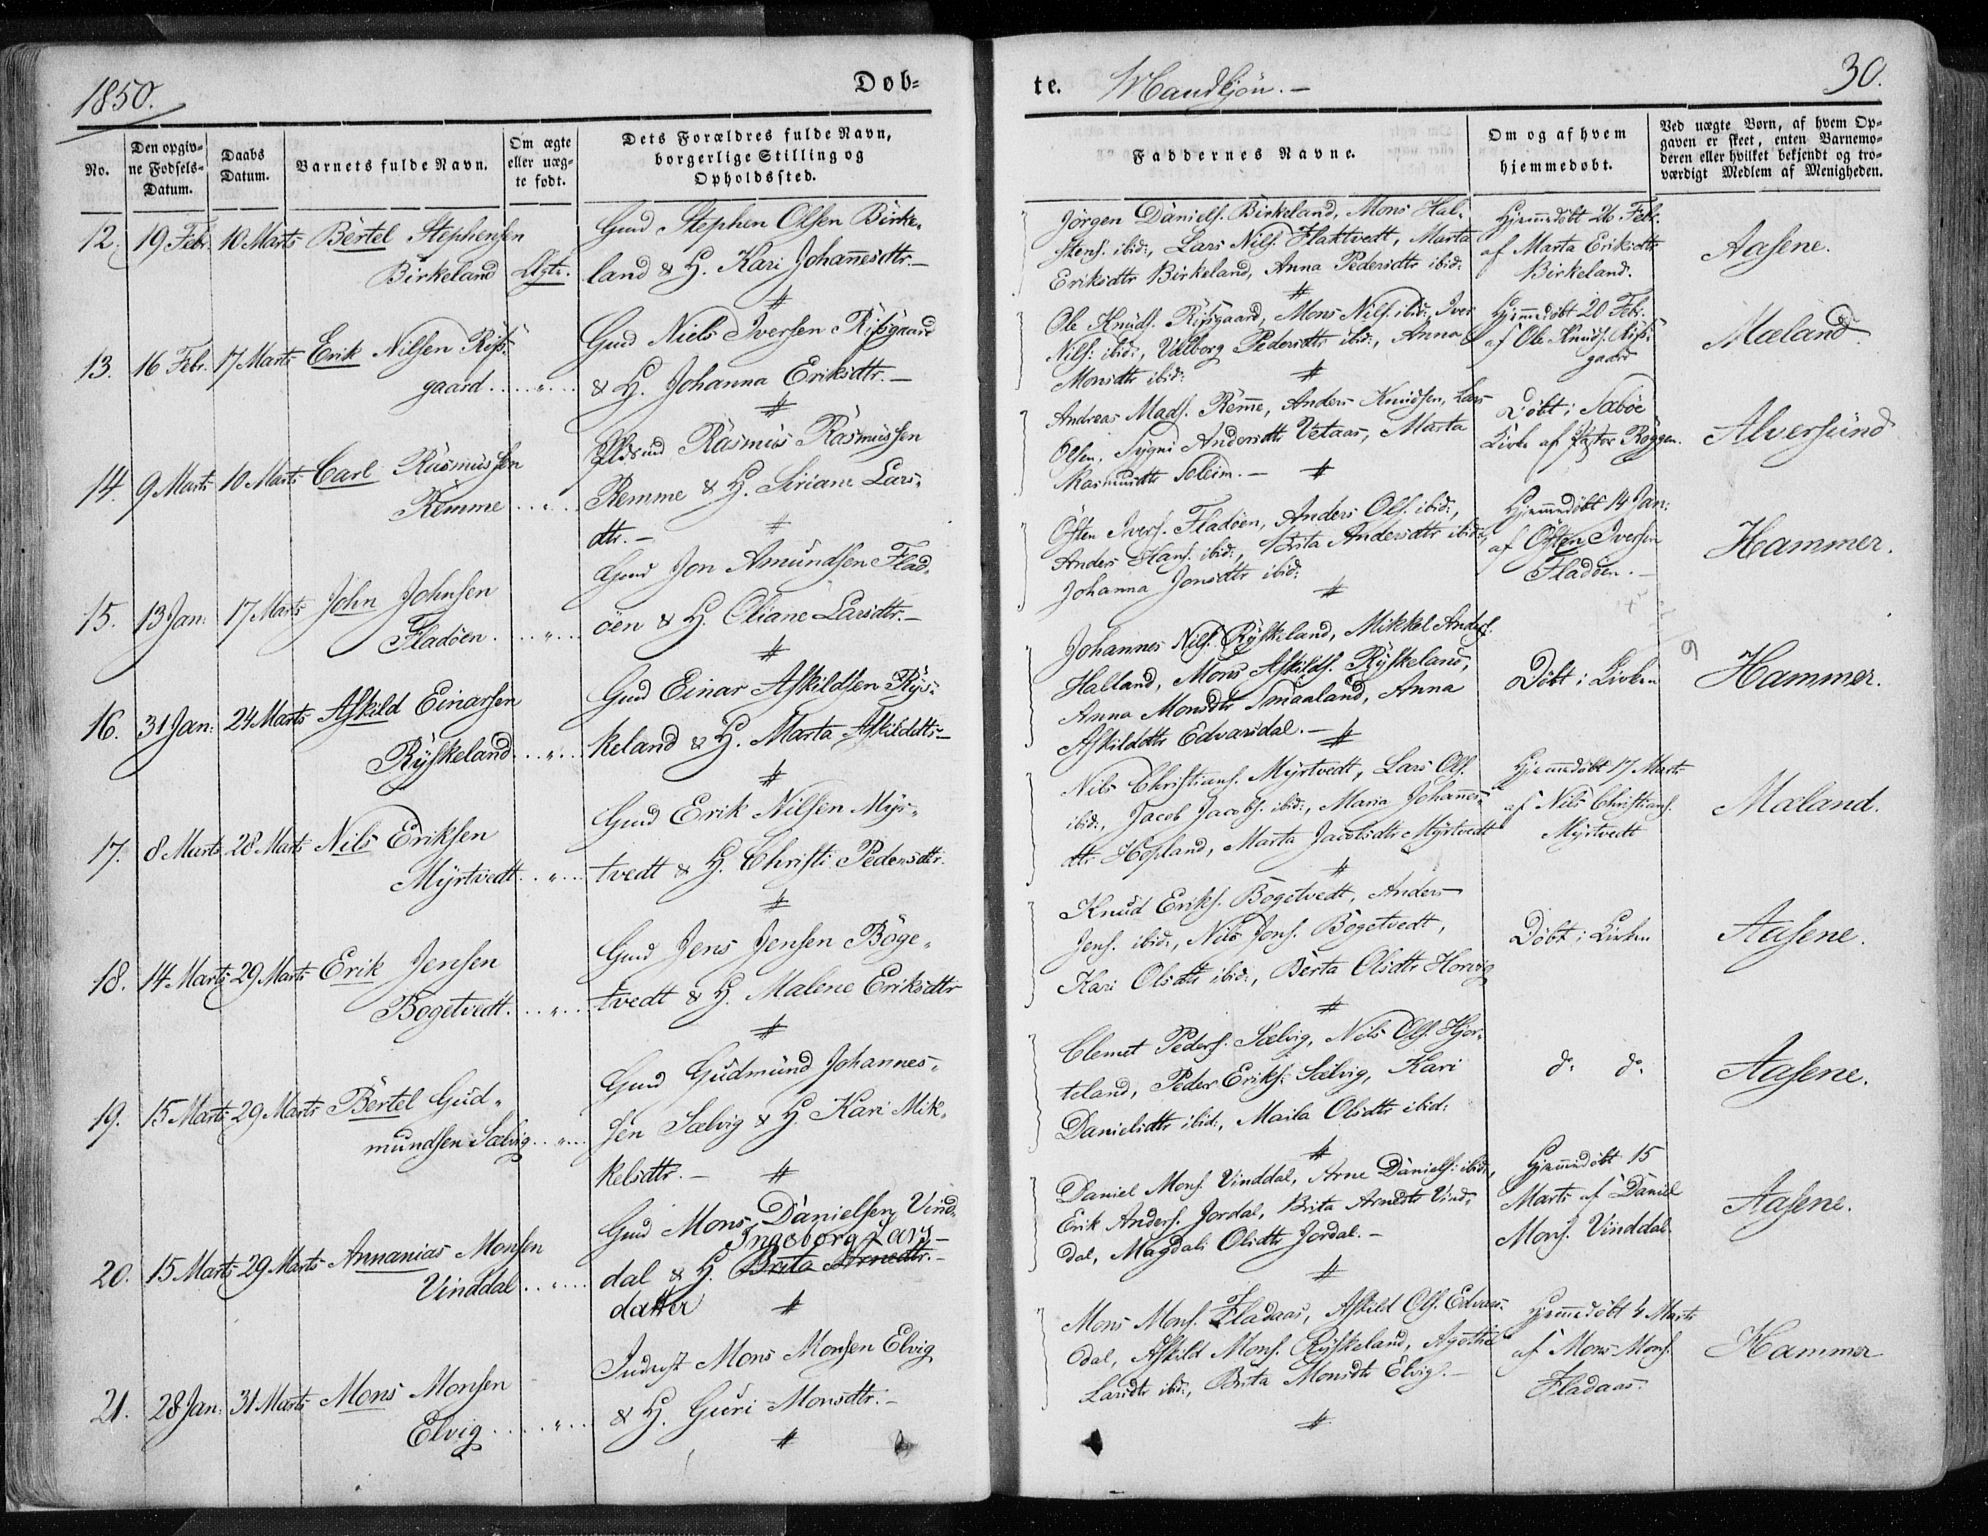 1850.
Døb-
te. Mandkjön.-
30.
No.
Den opgiv-
ne Fødsels-
Datum.
Daabs
Datum.
Barnets fulde Navn.
Om ægte
eller uæg-
te født.
Dets Forældres fulde Navn,
borgerlige Stilling og
Opholdssted.
Faddernes Navne.
Om og af hvem
hjemmedøbt.
Ved uægte Børn, af hvem Op-
gaven er skeet, enten Barnemo-
deren eller hvilket bekjendt og tro-
værdigt Medlem af Menigheden.
12. 19 Febr. 10 Marts Bertel Stephensen
Birkeland Ægte.
Gmd Stephen Olsen Birke-
land & H. Kari Johannesdtr.-
Jörgen Daniels. Birkeland, Mons Hal-
stens. ibid:, Lars Nils. Flaktvedt, Marta
Eriksdtr Birkeland, Anna Pedersdtr ibid:
Hjemmedöbt 26 Febr.
af Marta Eriksdtr
Birkeland.
Aasene.
13. 16 Febr. 17 Marts Erik Nilsen Riis-
gaard
Gmd Niels Iversen Riisgaard
& H. Johanna Eriksdtr.-
Ole Knuds. Riisgaard, Mons Nils. ibid:, Iver
Nils. ibid:, Valborg Pedersdtr ibid:, Anna
Monsdtr ibid:
Hjemmedöbt 20 Febr.
af Ole Knuds. Riis-
gaard
Mæland.
14. 9 Marts 10 Marts Carl Rasmussen
Remme
Rasmus Rasmussen
Remme & H. Siriane Lars-
dtr.-
Andreas Mads. Remme, Anders Knudsen, Lars
Olsen, Sygni Andersdtr Vetaas, Marta
Rasmusdtr Soleim.-
Döbt i Sæböe
Kirke af Pastor Röggen.
Alversund
15. 13 Jan: 17 Marts John Johnsen
Fladöen
Gmd Jon Amundsen Flad-
öen & H. Oliane Larsdtr.-
Östen Ivers. Fladöen, Anders Ols. ibid:,
Anders Hans. ibid:, Brita Andersdtr ibid:,
Johanna Jonsdtr ibid:
Hjemmedöbt 14 Jan:
af Östen Iversen
Fladöen.-
Hammer.
16. 31 Jan: 24 Marts Askild Einarsen
Ryskeland
Gmd Einar Askildsen Rys-
keland & H. Marta Askildsdtr-
Johannes Nils. Ryskeland, Mikkel Anders.
Halland, Mons Askilds. Ryskeland,
Anna Monsdtr Smaaland, Anna
Askildsdtr Edvarsdal.-
Döbt i Kirken
9
Hammer.
17. 8 Marts 28 Marts Nils Eriksen
Myrtvedt
Gmd Erik Nilsen Myr-
tvedt & H. Christi Pedersdtr.
Nils Christians. Myrtvedt, Lars Ols.
ibid:, Jacob Jacobs. ibid:, Maria Johannes-
dtr Hopland, Marta Jacobsdtr Myrtvedt
Hjemmedöbt 17 Marts
af Nils Christians.
Myrtvedt
Mæland.
18. 14 Marts 29 Marts Erik Jensen
Bogetvedt
Gmd Jens Jensen Böge-
tvedt & H. Malene Eriksdtr
Knud Eriks. Bögetvedt, Anders
Jens. ibid:, Nils Jons. Bögetvedt,
Kari Olsdtr ibid:, Berta Olsdtr Horvig
Döbt i Kirken
Aasene.
19. 15 Marts 29 Marts Bertel Gud-
mundsen Sælvig
Gmd Gudmund Johannes-
sen Sælvig & H. Kari Mik-
kelsdtr.-
Clemet Peders. Sælvig, Nils Ols. Hjor-
teland, Peder Eriks. Sælvig, Kari
Danielsdtr ibid:, Maila Olsdtr ibid:
do. do.
Aasene.
20. 15 Marts 29 Marts Annanias Monsen
Vinddal
Gmd Mons Danielsen Vind-
Ingeborg Lars-
dal & H. Brita Arnedtr.-
datter
Daniel Mons. Vinddal, Arne Daniels. ibid:,
Erik Anders. Jordal, Brita Arnedtr Vind-
dal, Magdali Olsdtr Jordal.-
Hjemmedöbt 15
Marts af Daniel
Mons. Vinddal
Aasene.
21. 28 Jan: 31 Marts Mons Monsen
Elvig
Inderst Mons Monsen Elvig
& H. Guri Monsdtr.-
Mons Mons. Fladaas, Askild Ols. Edvars-
dal, Askild Mons. Ryskeland, Agathe
Larsdtr ibid:, Brita Monsdtr Elvig.-
Hjemmedöbt 4 Marts
af Mons Mons.
Fladaas.
Hammer